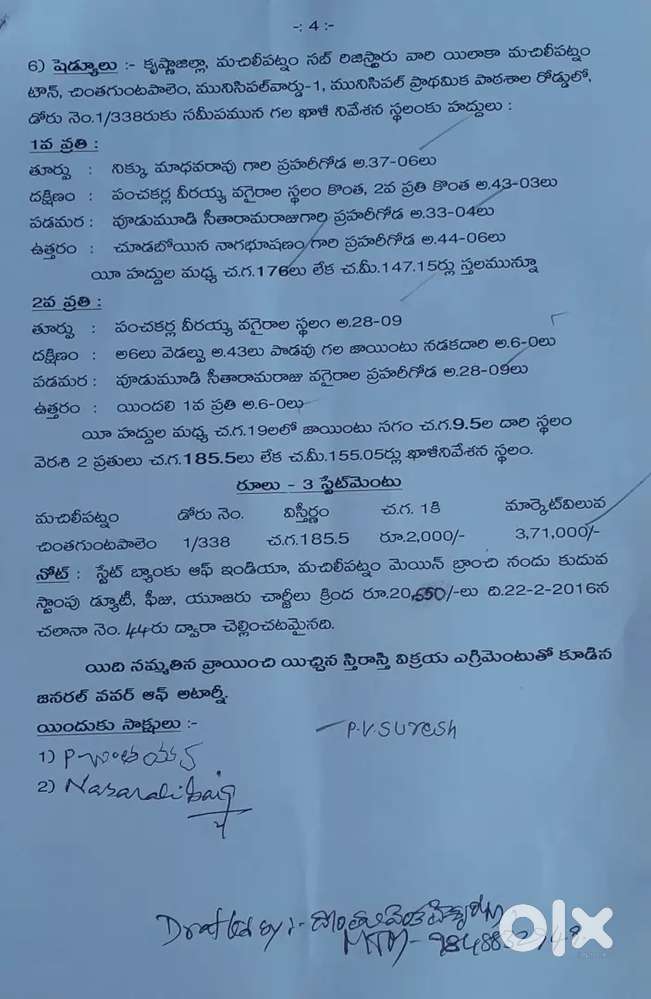 -: 4 :-
6) షెడ్యూలు :- కృష్ణాజిల్లా, మచిలీపట్నం సబ్ రిజిస్ట్రారు వారి యిలాకా మచిలీపట్నం
టౌన్, చింతగుంటపాలెం, మునిసిపల్‌వార్డు-1, మునిసిపల్ ప్రాథమిక పాఠశాల రోడ్డులో,
డోరు నెం.1/338రుకు సమీపమున గల ఖాళీ నివేశన స్థలంకు హద్దులు :
1వ వ్రతి :
తూర్పు : నిక్కు మాధవరావు గారి ప్రహరీగోడ అ.37-06లు
దక్షిణం : పంచకర్ల వీరయ్య వగైరాల స్థలం కొంత, 2వ వ్రతి కొంత అ.43-03లు
పడమర : వూడుమూడి సీతారామరాజుగారి ప్రహరీగోడ అ.33-04లు
ఉత్తరం : చూడబోయిన నాగభూషణం గారి ప్రహరీగోడ అ.44-06లు
యీ హద్దుల మధ్య చ.గ.176లు లేక చ.మీ.147.15ర్లు స్తలమున్నూ
2వ వ్రతి :
తూర్పు : పంచకర్ల వీరయ్య వగైరాల స్థలం అ.28-09
దక్షిణం : అ6లు వెడల్పు అ.43లు పొడవు గల జాయింటు నడకదారి అ.6-0లు
పడమర : వూడుమూడి సీతారామరాజు వగైరాల ప్రహరీగోడ అ.28-09లు
ఉత్తరం : యిందలి 1వ వ్రతి అ.6-0లు
యీ హద్దుల మధ్య చ.గ.19లలో జాయింటు సగం చ.గ.9.5ల దారి స్థలం
వెరశి 2 వ్రతులు చ.గ.185.5లు లేక చ.మీ.155.05ర్లు ఖాళీనివేశన స్థలం.
రూలు - 3 స్టేట్‌మెంటు
మచిలీపట్నం డోరు నెం. విస్తీర్ణం చ.గ. 1కి మార్కెట్‌విలువ
చింతగుంటపాలెం 1/338 చ.గ.185.5 రూ.2,000/- 3,71,000/-
నోట్ : స్టేట్ బ్యాంకు ఆఫ్ ఇండియా, మచిలీపట్నం మెయిన్ బ్రాంచి నందు కుదువ
స్టాంపు డ్యూటీ, ఫీజు, యూజరు చార్జీలు క్రింద రూ.20,550/-లు ది.22-2-2016న
చలానా నెం. 44రు ద్వారా చెల్లించటమైనది.
యిది నమ్మతిన వ్రాయించి యిచ్చిన స్తిరాస్తి విక్రయ ఎగ్రిమెంటుతో కూడిన
జనరల్ వవర్ ఆఫ్ అటార్నీ.
యిందుకు సాక్షులు :-
P.V.Suresh
1) P.
2) Nasarali baig
Drafted by :-
MTM - 9848832948
olx